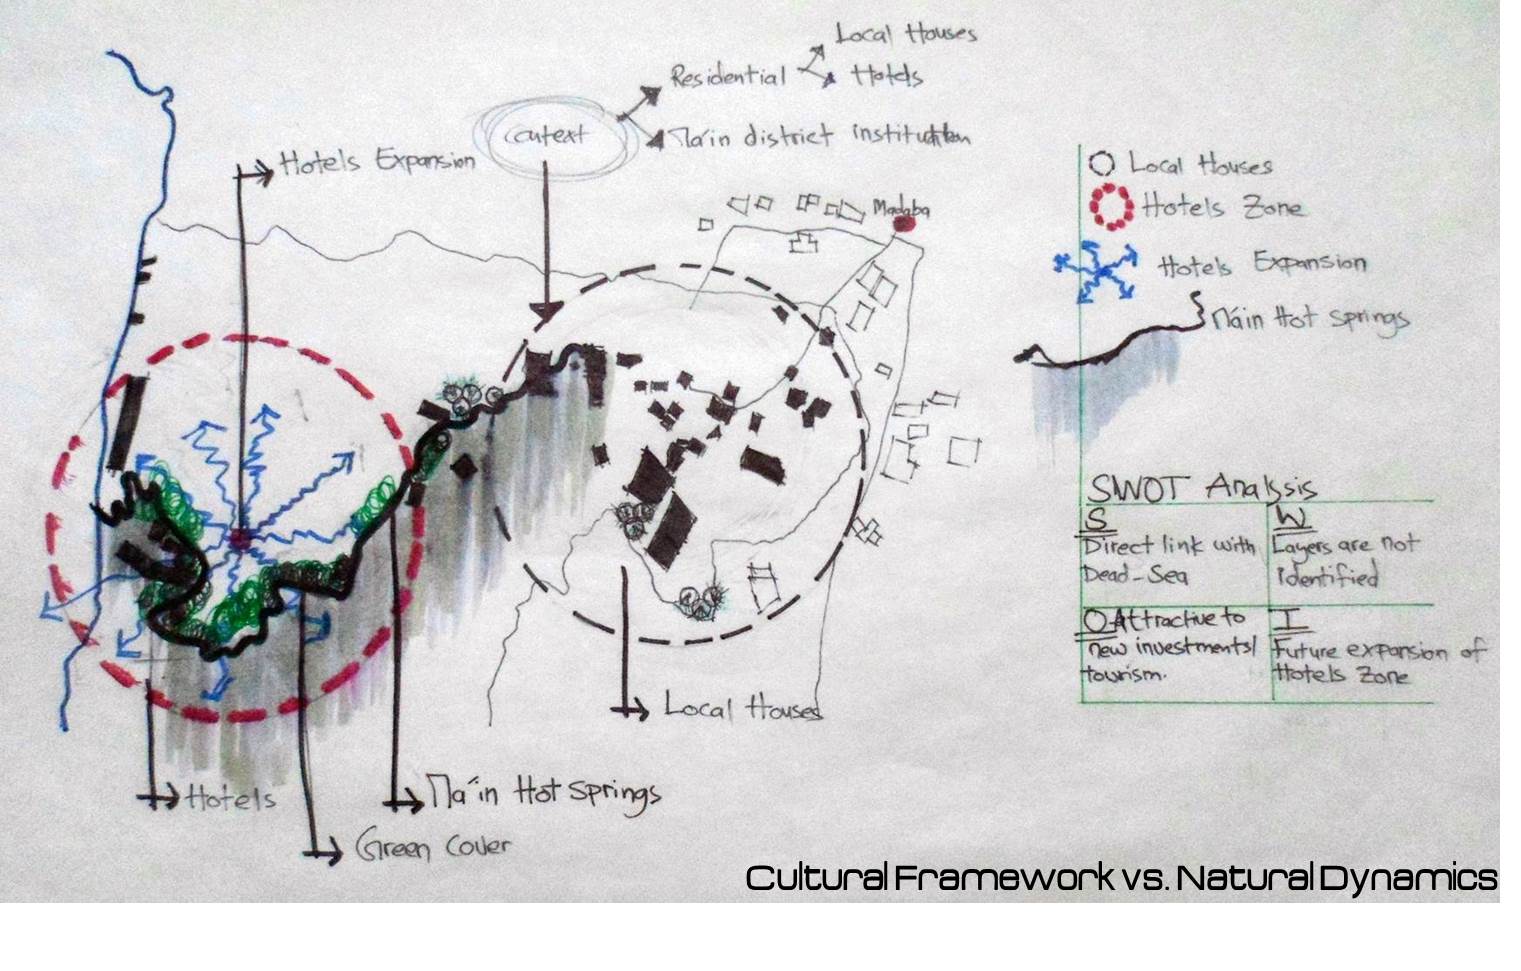 Local Houses
Residential
Hotels
Context
Ma'in district institution
Hotels Expansion
Madaba
Local Houses
Hotels Zone
Hotels Expansion
Main Hot Springs
SWOT Analysis
S
Direct link with
Dead-Sea
W
Layers are not
Identified
O Attractive to
new investments/
tourism.
T
Future expansion of
Hotels Zone
Local Houses
Hotels
Ma'in Hot Springs
Green Cover
Cultural Framework vs. Natural Dynamics